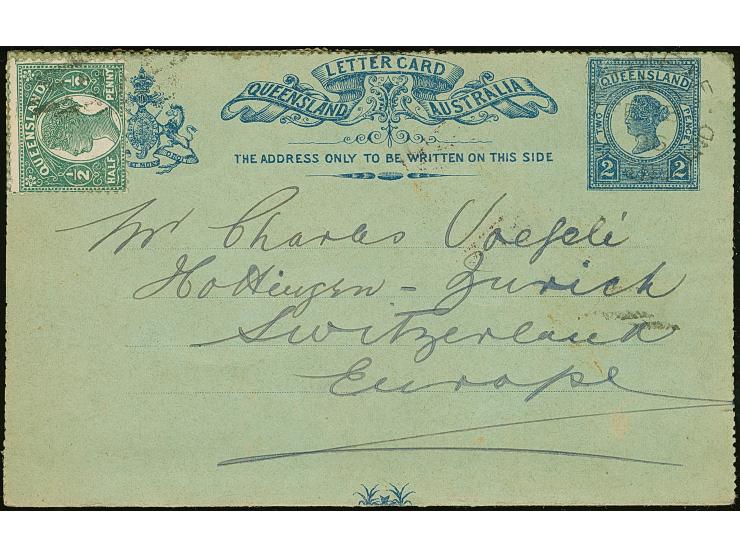 LETTER CARD
QUEENSLAND AUSTRALIA
THE ADDRESS ONLY TO BE WRITTEN ON THIS SIDE
QUEENSLAND
½ ½
HALF PENNY
QUEENSLAND
TWO PENCE
2 2
Mr Charles Voegeli
Hottingen - Zurich
Switzerland
Europe